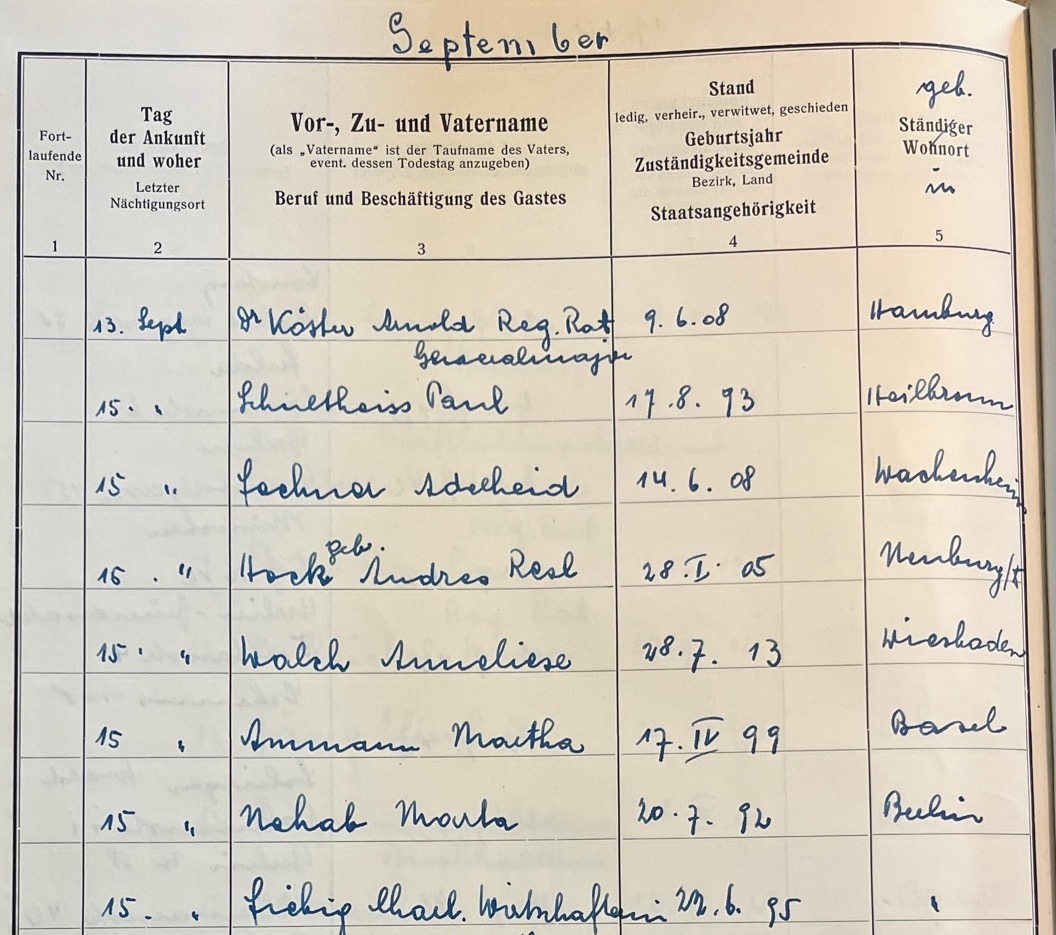 September
Fort-
laufende
Nr.
1
Tag
der Ankunft
und woher
Letzter
Nächtigungsort
2
Vor-, Zu- und Vatername
(als „Vatername" ist der Taufname des Vaters,
event. dessen Todestag anzugeben)
Beruf und Beschäftigung des Gastes
3
Stand
ledig, verheir., verwitwet, geschieden
Geburtsjahr
Zuständigkeitsgemeinde
Bezirk, Land
Staatsangehörigkeit
4
geb.
Ständiger
Wohnort
in
5
13. Sept. Dr Köster Arnold Reg. Rat 9. 6. 08 Hamburg
Generalmajor
15. " Schultheiss Paul 17. 8. 93 Heilbronn
15 " Adelheid 14. 6. 08 Wachenheim
geb.
16. " Hock Andres Resl 28. I. 05 Neuburg
15. " Walch Anneliese 28. 7. 13 Wiesbaden
15 " Ammann Martha 17. IV 99 Basel
15 " Nehab Marta 20. 7. 92 Berlin
15. " Fiebig Charl. Wirtschafterin 22. 6. 95 "